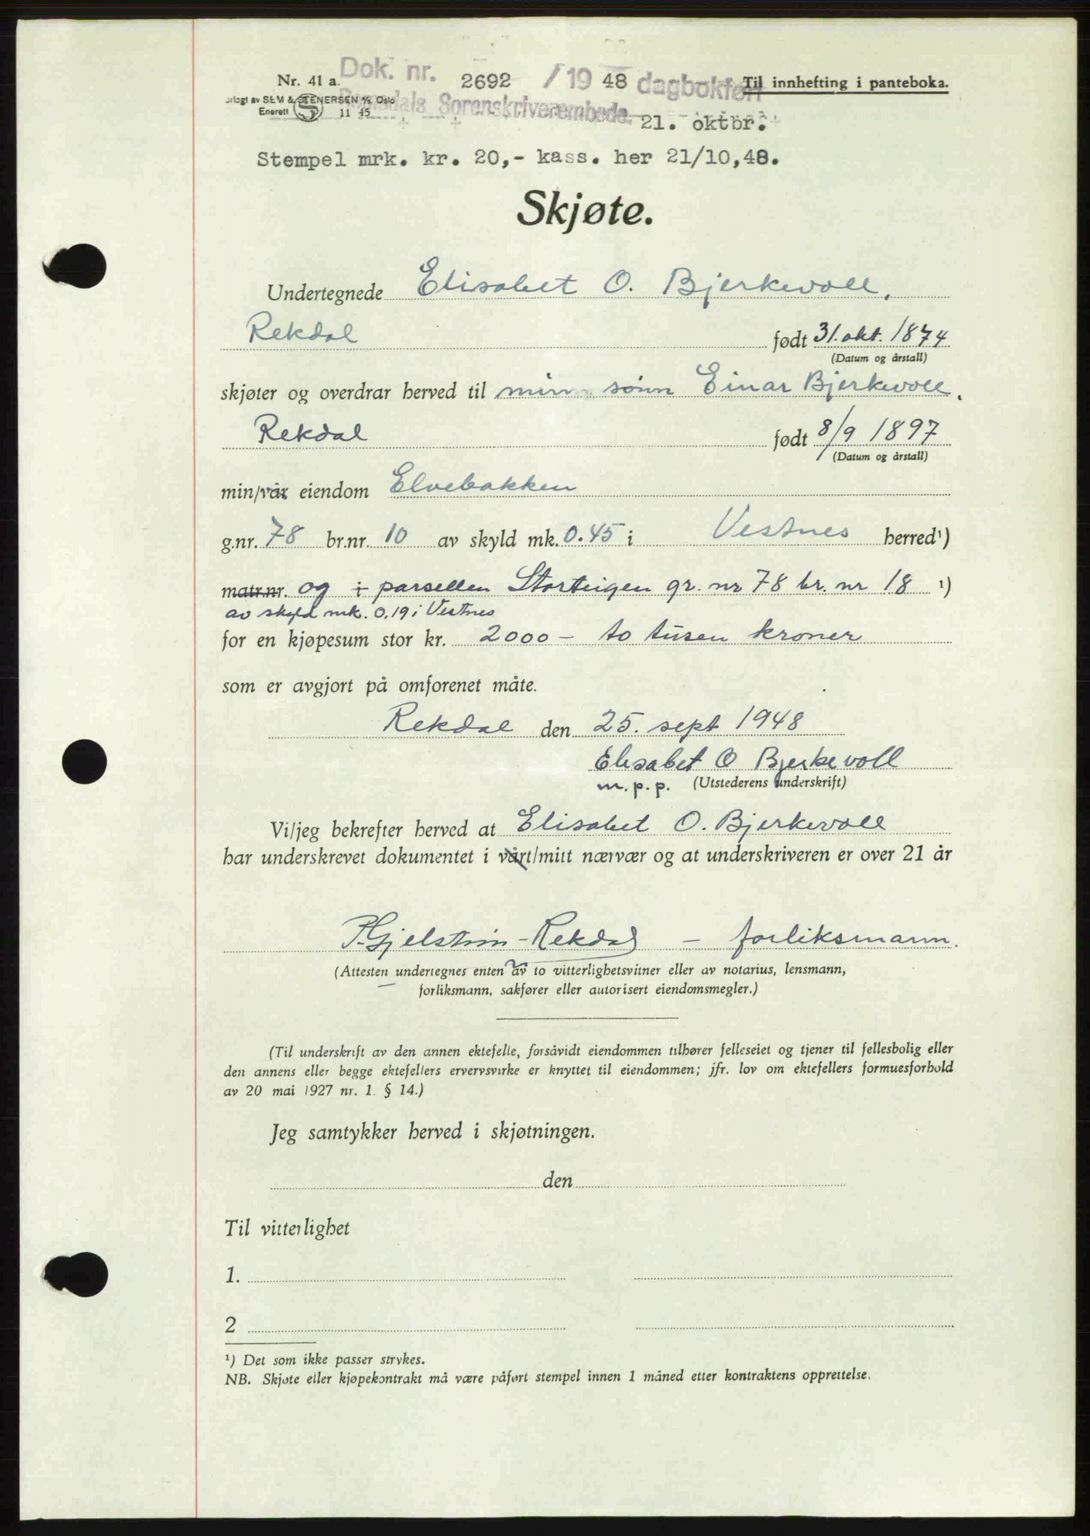 Nr. 41 a Dok. nr. 2692 / 19 48 dagbokført Til innhefting i panteboka.
SEM & STENERSEN A/S Oslo Sorenskriverembede.
Enerett 11 45 21. oktbr.
Stempel mrk. kr. 20,- kass. her 21/10,48.
Skjøte.
Undertegnede Elisabet O. Bjerkevoll,
Rekdal født 31. okt. 1874
(Datum og årstall)
skjøter og overdrar herved til min sønn Einar Bjerkevoll,
Rekdal født 8/9 1897
(Datum og årstall)
min/vår eiendom Elvebakken
g.nr. 78 br.nr. 10 av skyld mk. 0.45 i Vestnes herred¹)
matr.nr. og i parsellen Storteigen gr. nr 78 br. nr 18 ¹)
av skyld mk. 0.19 i Vestnes
for en kjøpesum stor kr. 2000 – to tusen kroner
som er avgjort på omforenet måte.
Rekdal den 25. sept 1948
Elisabet O Bjerkevoll
m.p.p. (Utstederens underskrift)
Vi/jeg bekrefter herved at Elisabet O. Bjerkevoll
har underskrevet dokumentet i vårt/mitt nærvær og at underskriveren er over 21 år
P. Gjelstein - Rekdal – forliksmann.
(Attesten undertegnes enten av to vitterlighetsvitner eller av notarius, lensmann,
forliksmann, sakfører eller autorisert eiendomsmegler.)
(Til underskrift av den annen ektefelle, forsåvidt eiendommen tilhører felleseiet og tjener til fellesbolig eller
den annens eller begge ektefellers ervervsvirke er knyttet til eiendommen; jfr. lov om ektefellers formuesforhold
av 20 mai 1927 nr. 1. § 14.)
Jeg samtykker herved i skjøtningen.
den
Til vitterlighet
1.
2
¹) Det som ikke passer strykes.
NB. Skjøte eller kjøpekontrakt må være påført stempel innen 1 måned etter kontraktens opprettelse.